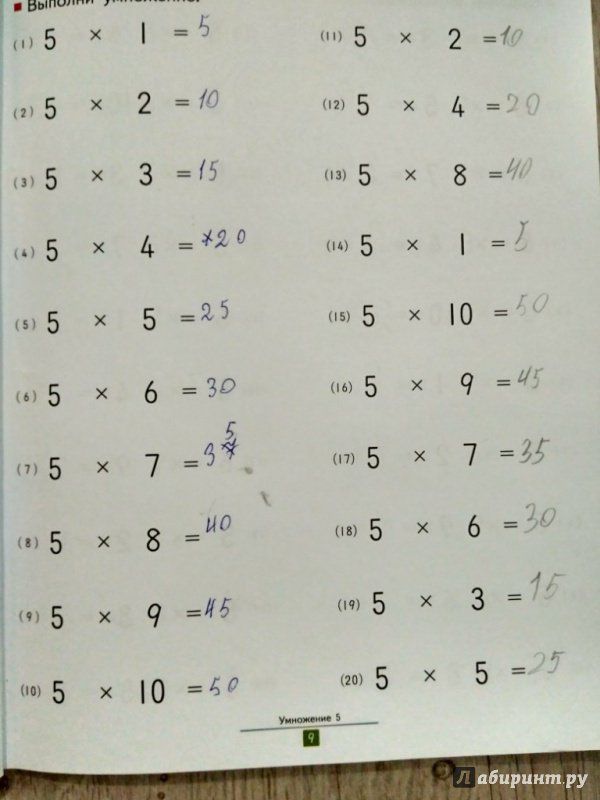 Выполни умножение.
(1) 5 × 1 = 5
(2) 5 × 2 = 10
(3) 5 × 3 = 15
(4) 5 × 4 = 20
(5) 5 × 5 = 25
(6) 5 × 6 = 30
(7) 5 × 7 = 35
(8) 5 × 8 = 40
(9) 5 × 9 = 45
(10) 5 × 10 = 50
(11) 5 × 2 = 10
(12) 5 × 4 = 20
(13) 5 × 8 = 40
(14) 5 × 1 = 5
(15) 5 × 10 = 50
(16) 5 × 9 = 45
(17) 5 × 7 = 35
(18) 5 × 6 = 30
(19) 5 × 3 = 15
(20) 5 × 5 = 25
Умножение 5
9
Лабиринт.ру